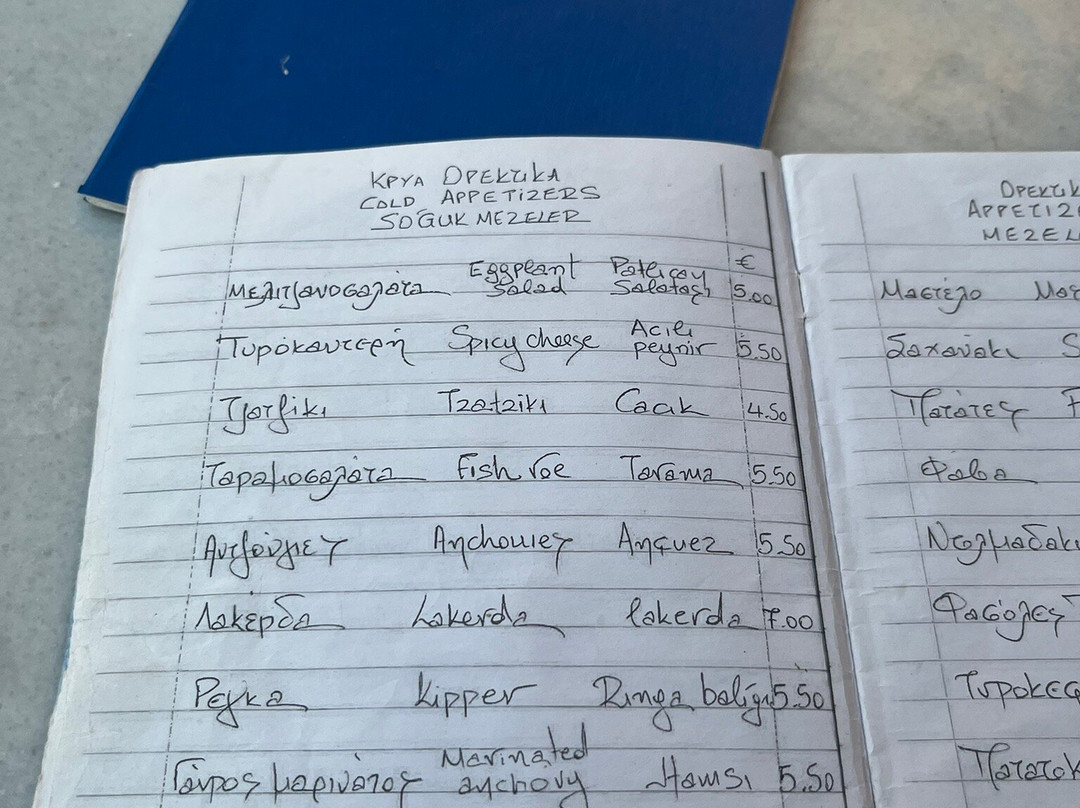 ΚΡΥΑ ΟΡΕΚΤΙΚΑ
COLD APPETIZERS
SOĞUK MEZELER
€
Μελιτζανοσαλάτα Eggplant Salad Patlıcan Salatası 5.00
Τυροκαυτερή Spicy cheese Acılı peynir 5.50
Τζατζίκι Tzatziki Cacık 4.50
Ταραμοσαλάτα Fish roe Tarama 5.50
Αντζούγιες Anchouies Ançuez 5.50
Λακέρδα Lakerda lakerda 7.00
Ρέγκα Kipper Ringa balığı 5.50
Γαύρος μαρινάτος Marinated anchovy Hamsi 5.50
ΟΡΕΚΤΙΚ
APPETIZ
MEZEL
Μαστέλο Μασ
Σαχανάκι S
Πατάτες F
Φάβα
Ντολμαδάκι
Φασόλες
Τυροκε
Πατατοκ